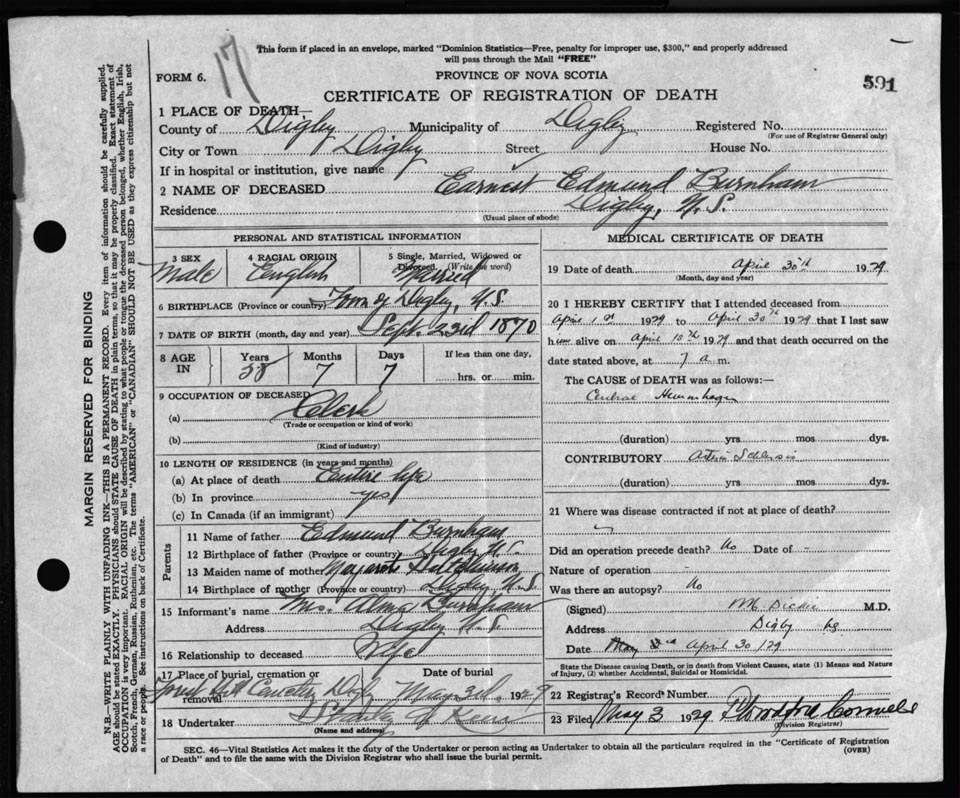 17
This form if placed in an envelope, marked "Dominion Statistics—Free, penalty for improper use, $300," and properly addressed
will pass through the Mail "FREE"
FORM 6.
PROVINCE OF NOVA SCOTIA
591
CERTIFICATE OF REGISTRATION OF DEATH
1 PLACE OF DEATH—
County of Digby Municipality of Digby Registered No.
(For use of Registrar General only)
City or Town Digby Street House No.
If in hospital or institution, give name
2 NAME OF DECEASED Earnest Edmund Burnham
Residence Digby, N.S.
(Usual place of abode)
PERSONAL AND STATISTICAL INFORMATION
3 SEX 4 RACIAL ORIGIN 5 Single, Married, Widowed or
Divorced. (Write the word)
Male English Married
6 BIRTHPLACE (Province or country) Town of Digby, N.S.
7 DATE OF BIRTH (month, day and year) Sept. 23rd 1870
8 AGE IN Years Months Days If less than one day,
58 7 7 hrs. or min.
9 OCCUPATION OF DECEASED
(a) Clerk
(Trade or occupation or kind of work)
(b)
(Kind of industry)
10 LENGTH OF RESIDENCE (in years and months)
(a) At place of death Entire life
(b) In province yes
(c) In Canada (if an immigrant)
Parents
11 Name of father Edmund Burnham
12 Birthplace of father (Province or country) Digby N.S.
13 Maiden name of mother Margaret Hutchinson
14 Birthplace of mother (Province or country) Digby N.S
15 Informant's name Mrs. Alma Burnham
Address Digby N.S.
16 Relationship to deceased Wife
17 Place of burial, cremation or removal Date of burial
Forest Hill Cemetery Digby May 3rd 1929
18 Undertaker
(Name and address)
MEDICAL CERTIFICATE OF DEATH
19 Date of death April 30th 1929
(Month, day and year)
20 I HEREBY CERTIFY that I attended deceased from
April 1st 1929 to April 30th 1929 that I last saw
him alive on April 18th 1929 and that death occurred on the
date stated above, at 7 a m.
The CAUSE OF DEATH was as follows:—
Cerebral Hemorrhage
(duration) yrs. mos dys.
CONTRIBUTORY Arterio Sclerosis
(duration) yrs mos dys.
21 Where was disease contracted if not at place of death?
Did an operation precede death? No Date of -
Nature of operation -
Was there an autopsy? No
(Signed) M. Dickie M.D.
Address Digby NS
Date April 30/29
State the Disease causing Death, or in death from Violent Causes, state (1) Means and Nature
of Injury, (2) whether Accidental, Suicidal or Homicidal.
22 Registrar's Record Number
23 Filed May 3 1929
(Division Registrar)
SEC. 46—Vital Statistics Act makes it the duty of the Undertaker or person acting as Undertaker to obtain all the particulars required in the "Certificate of Registration
of Death" and to file the same with the Division Registrar who shall issue the burial permit.
(OVER)
MARGIN RESERVED FOR BINDING
N.B.—WRITE PLAINLY WITH UNFADING INK—THIS IS A PERMANENT RECORD. Every item of information should be carefully supplied.
AGE should be stated EXACTLY. PHYSICIANS should STATE CAUSE OF DEATH in plain terms, so that it may be properly classified. Exact statement of
OCCUPATION is very important. RACIAL ORIGIN will be described by stating to what people or tongue the deceased person belonged, whether English, Irish,
Scotch, French, German, Russian, Ruthenian, etc. The terms "AMERICAN" or "CANADIAN" SHOULD NOT BE USED as they express citizenship but not
a race or people. See instructions on back of Certificate.